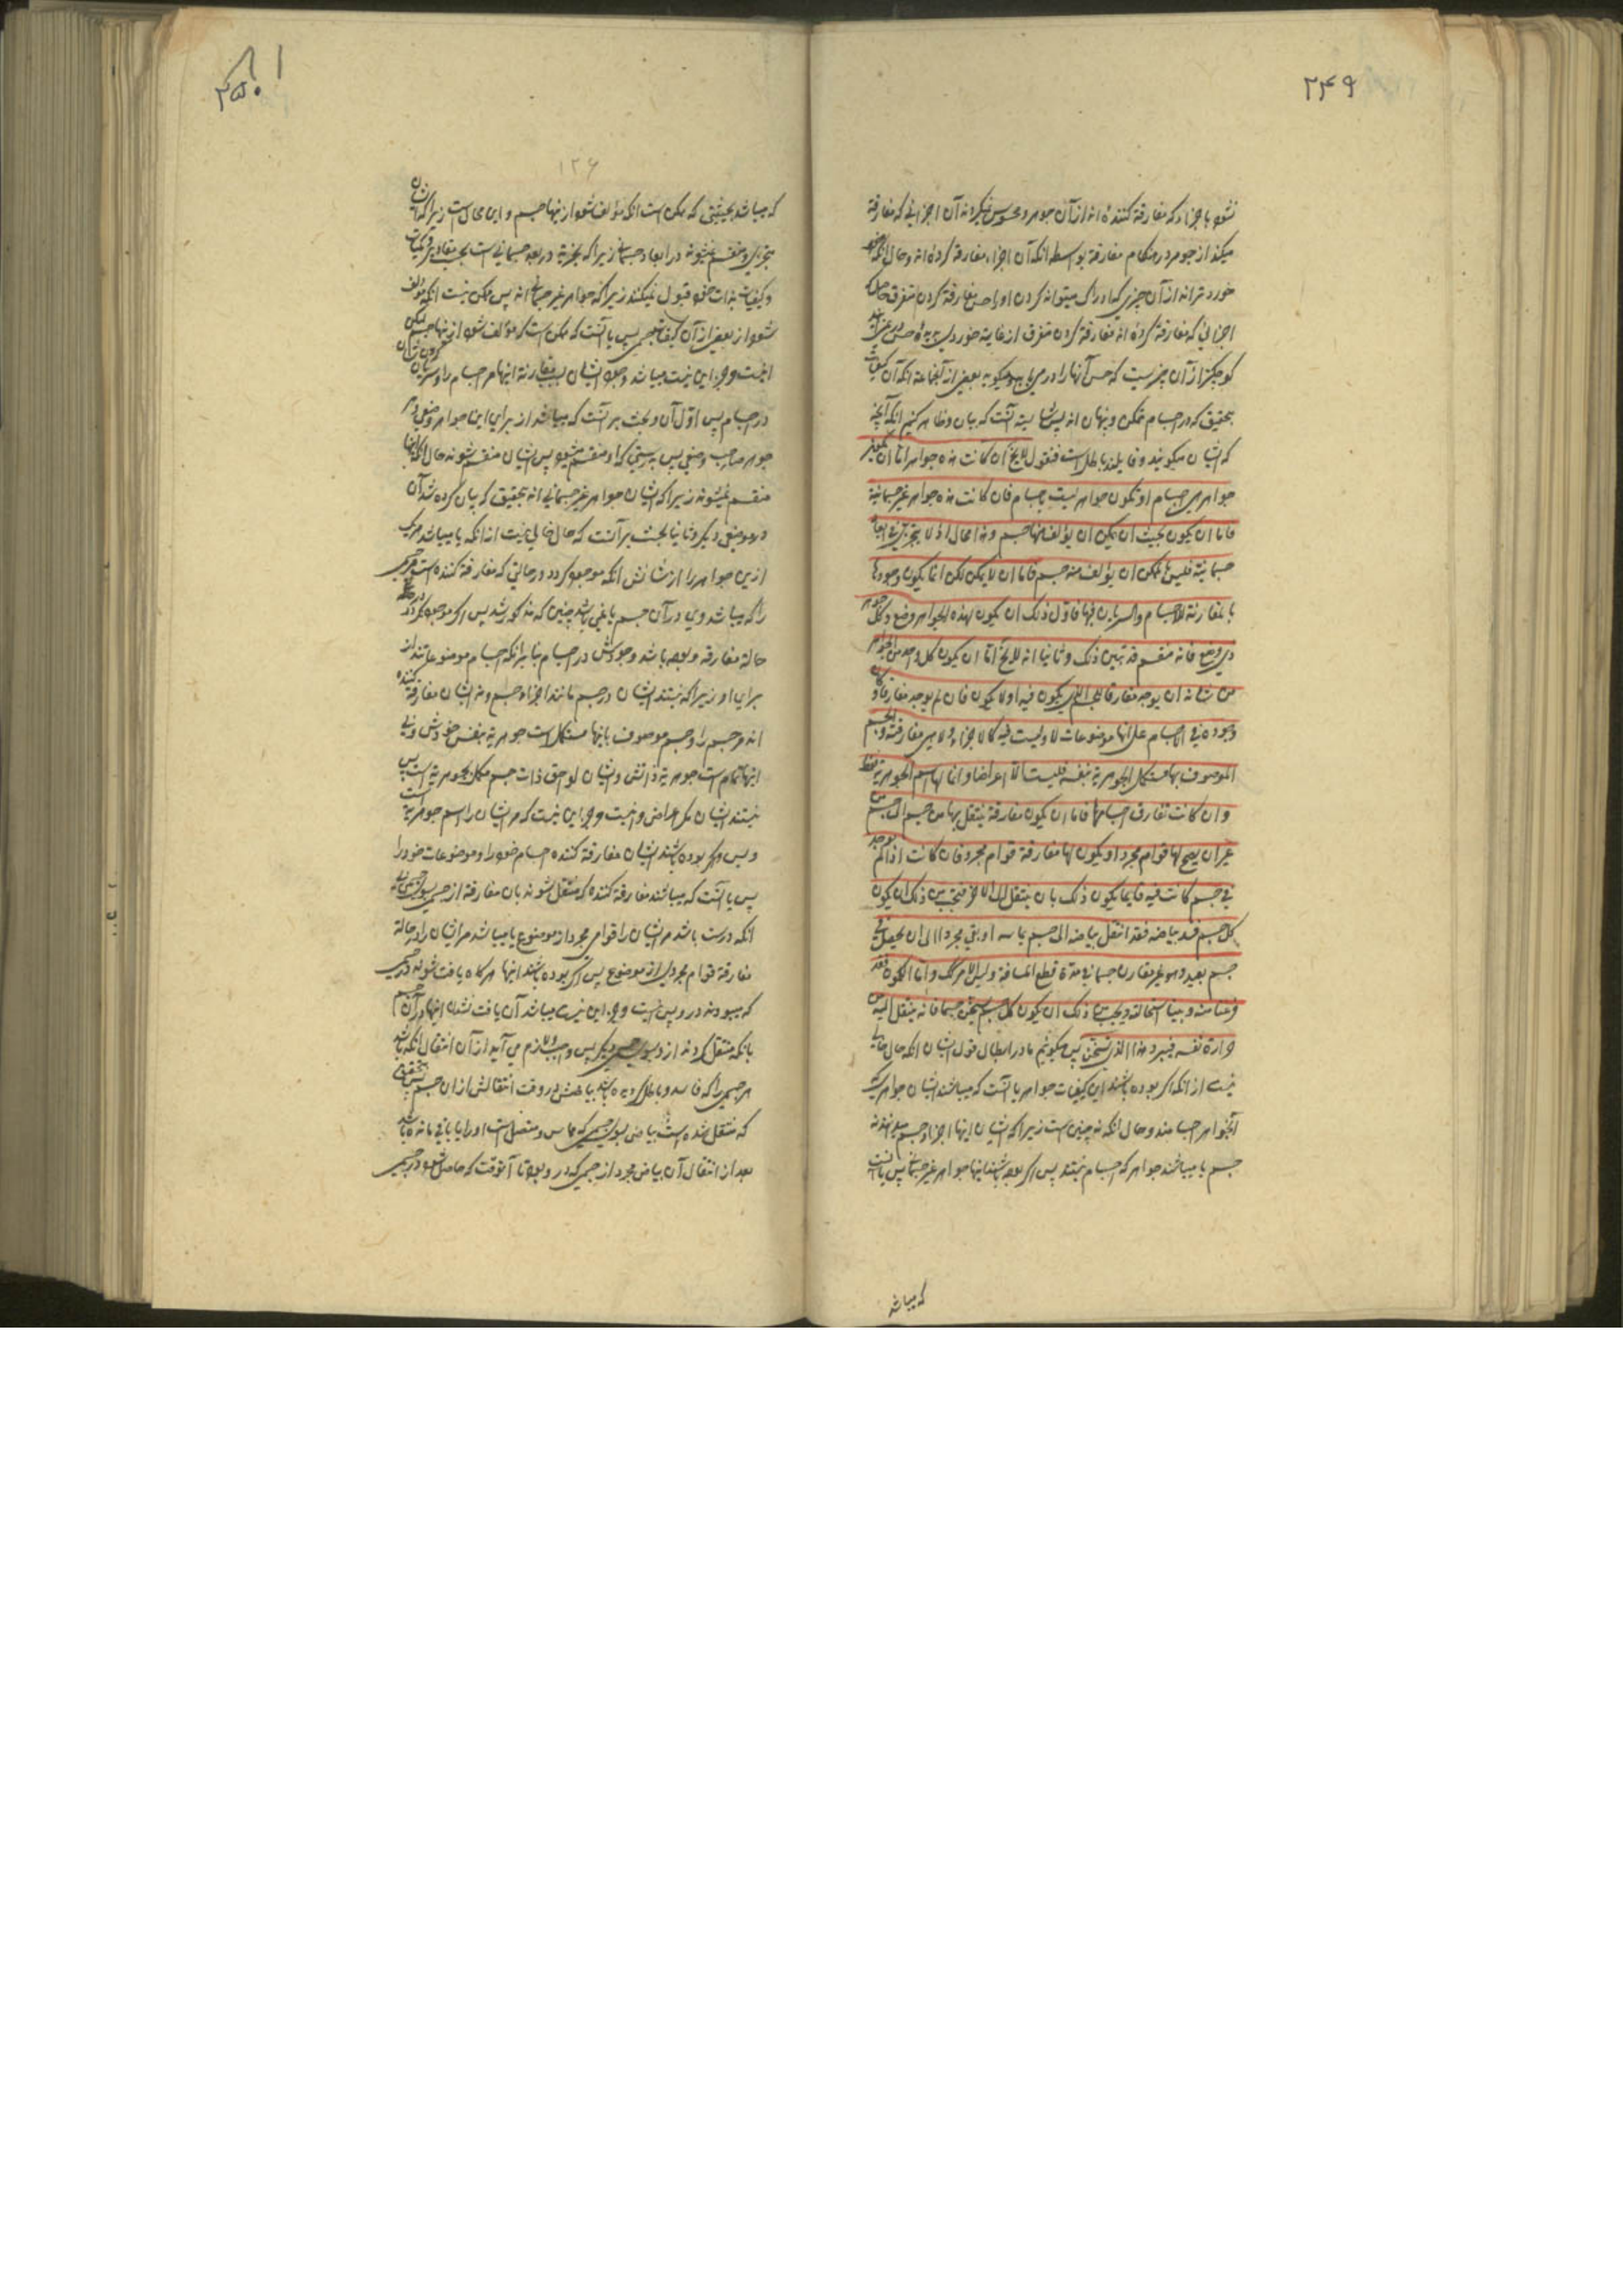 ۲۴۹
نشود باجزاء که مفارقة کننده اند از آن جوهر و محسوس نیکردند آن اجزائی که مفارقة
میکند از جوهر در هنکام مفارقة بواسطه انکه آن اجزاء مفارقة کرده اند و حال انکه
خورد ترانه از آن چیزی که ادراک میتواند کردن او را حس مفارقة کردن متفرق
اجزائی که مفارقة کرده اند مفارقة کردن متفرق از غایت خوردی
کوچکتر از آن چیزیست که حس آنها را در می یابد و میکوید بعضی از آنجماعة انکه آن کیفیات
بتحقیق که در اجسام متمکن و پنهان اند پس شایسته آنست که بیان و ظاهر کنیم انکه آنچه
که ایشان میکویند و قایلند باطل است فنقول لا یخ ان کانت هذه جواهر اما ان تکون
جواهر هی اجسام او تکون جواهر لیست باجسام فان کانت هذه جواهر غیر جسمانیة
فاما ان یکون بحیث ان یمکن ان یؤلف منها جسم و هذا محال اذ لا یتجزی فی ابعاد
جسمانیة فلیس یمکن ان یؤلف منه جسم فاما ان لا یمکن لکن انما یکون وجودها
بالمقارنة للاجسام والسریان فیها فاول ذلک ان یکون لهذه الجواهر وضع وکل جوهر
ذی وضع فانه منقسم قد تبین ذلک وثانیا انه لا یخ اما ان یکون کل واحد من الجواهر
من شانه ان یوجد مفارقا للجسم الذی یکون فیه او لا یکون فان لم یوجد مفارقا وکان
وجوده فی الاجسام علی انها موضوعات له ولیست فیه کالاجزاء ولا هی مفارقة والجسم
الموصوف بها مستکمل الجوهریة بنفسه فلیست الا اعراضا وانما لها اسم الجوهریة فقط
وان کانت تفارق اجسامها فاما ان یکون مفارقة ینتقل بها من جسم الی جسم من
غیر ان یصح لها قوام مجردا او یکون لها مفارقة قوام مجرد فان کانت اذا لم یوجد
فی جسم کانت فیه فانما یکون ذلک بان ینتقل الی الاخر فیجب من ذلک ان یکون
کل جسم فسد بیاضه فقد انتقل بیاضه الی جسم یماسه او بقی مجردا الی ان یحصل فی
جسم بعید وهو غیر مقارن جسما فی مدة قطع المسافة ولیس الامر کک واما الکمون فقد
فرغنا منه وبینا استحالته ویجب من ذلک ان یکون کل جسم یسخن جسما فانه ینتقل الیه من
حرارة نفسه فیبرد هذا الذی یسخن پس میکوئیم ما در ابطال قول ایشان انکه حال خالی
نیست از انکه اکر بوده باشند این کیفیات جواهر یا آنست که میباشند ایشان جواهریکه
آنجواهر اجسامند و حال انکه نه چنین است زیرا که ایشان اینها اجزاء و جسم میدانند نه
جسم یا میباشند جواهر که اجسام نیستند پس اکر بوده باشند اینها جواهر غیر جسمانی پس یا آنست
که میباشد
۲۵۰
۱۲۶
که میباشد بحیثیتی که ممکن است انکه مؤلف شود از اینها جسم و این محال است زیرا که
متجزی و منقسم نمیشوند در ابعاد جسمانی زیرا که تجزیة در بعد جسمانی است بحسب مقادیر و کمیات
و کیفیات بذات خود قبول نمیکنند زیرا که جواهر غیر جسمانی اند پس ممکن نیست انکه مؤلف
شود از بعضی از آن کیفیات جسمی پس یا آنست که ممکن است که مؤلف شود از اینها جسم لیکن
نیست و جز این نیست میباشد وجود ایشان بسبب مقارنة اینها مر اجسام را و سریان
در اجسام پس اول آن و بحث بر آنست که میباشد از برای این جواهر وضعی و هر
جوهر صاحب وضعی پس بدرستی که او منقسم میشود پس ایشان منقسم شوند حال انکه اینها
منقسم نمیشوند زیرا که ایشان جواهر غیر جسمانی اند بتحقیق که بیان کرده شد آن
در موضعی دیکر و ثانیا بحث بر آنست که حال خالی نیست از انکه یا میباشد هر یک
ازین جواهر را از شانش انکه موجود کردد در حالتی که مفارقة کننده است مر جسمی
را که میباشد وی در آن جسم یا نمی باشد چنین که مذکور شد پس اکر موجود نکردد در
حالة مفارقه و بوده باشد وجودش در اجسام بنا بر انکه اجسام موضوعاتند از
برای او زیرا که نیستند ایشان در جسم مانند اجزاء جسم و نه ایشان مفارقة کننده
اند مر جسم را و جسم موصوف باینها مستکمل است جوهریة بنفس خودش و بی
اینها تمام است جوهریة ذاتش و ایشان لواحق ذات جسم مکمل بجوهریة است پس
نیستند ایشان مکر اعراض و نیست و جز این نیست که مر ایشان را اسم جوهریة است
و بس و اکر بوده باشند ایشان مفارقة کننده اجسام خود را و موضوعات خود را
پس یا آنست که میباشند مفارقة کننده که منتقل شوند بآن مفارقة از جسمی بسوی جسمی بی
انکه درست باشد مر ایشان را قوامی مجرد از موضوع یا میباشد مر ایشان را در حالة
مفارقة قوام مجردی از موضوع پس اکر بوده باشند اینها هر کاه یافت نشوند در جسمی
که میبودند در وپس نیست و جز این نیست میباشد آن یافت نشدن اینها در آن جسم
بانکه منتقل کردند از و بسوی جسمی دیکر پس واجب و لازم می آید از آن انتقال انکه باشد
هر جسمی را که فاسد و باطل کردیده باشد بیاضش در وقت انتقالش از ان جسم پس بتحقیق
که منتقل شده است بیاض بسوی جسمی که مماس و متصل است او را یا باقی مانده باشد
بعد از انتقال آن بیاض مجرد از جسمی که در و بود تا آنوقت که حاصل شود در جسمی